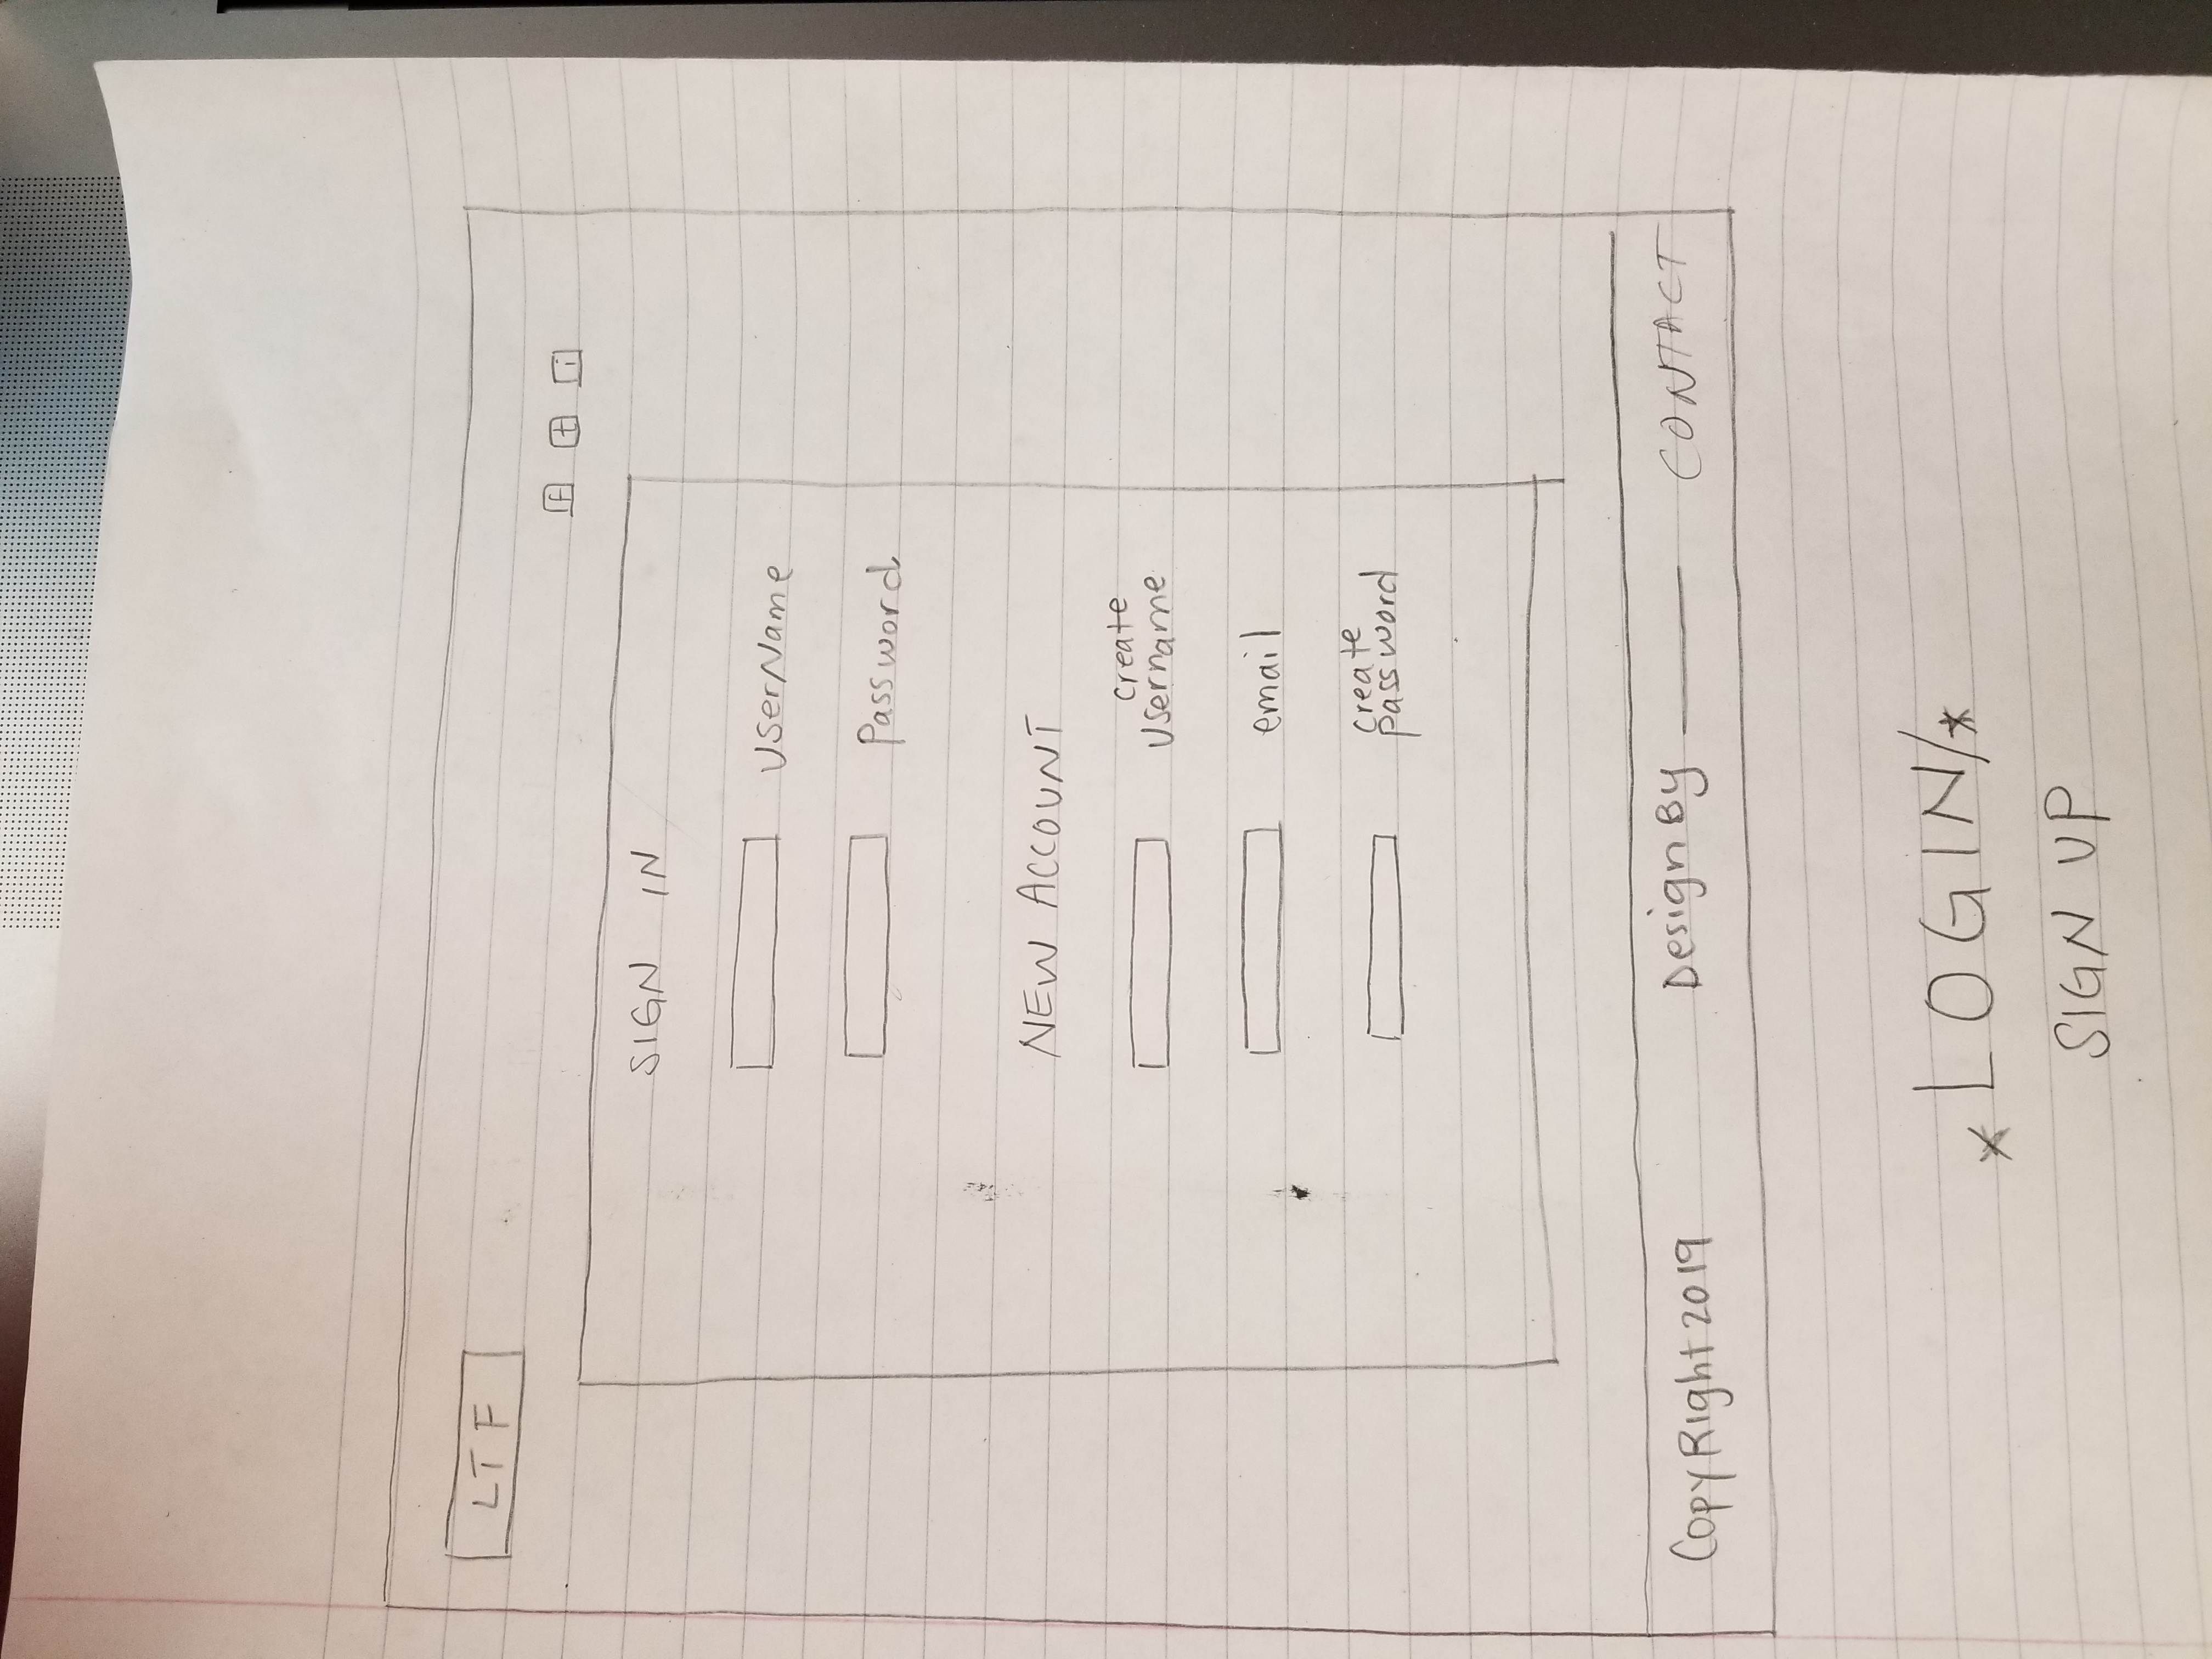 LTF
f t i
SIGN IN
UserName
Password
NEW ACCOUNT
create
Username
email
create
password
CopyRight 2019 Design By ______ CONTACT
* LOGIN/*
SIGN UP